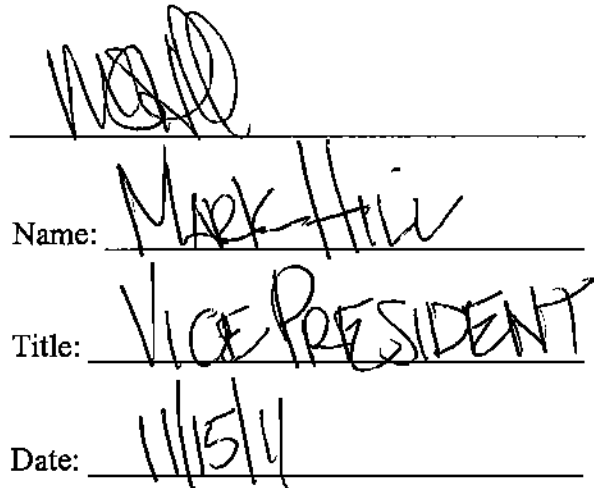 Name: Mark Hill
Title: VICE PRESIDENT
Date: 11/15/11